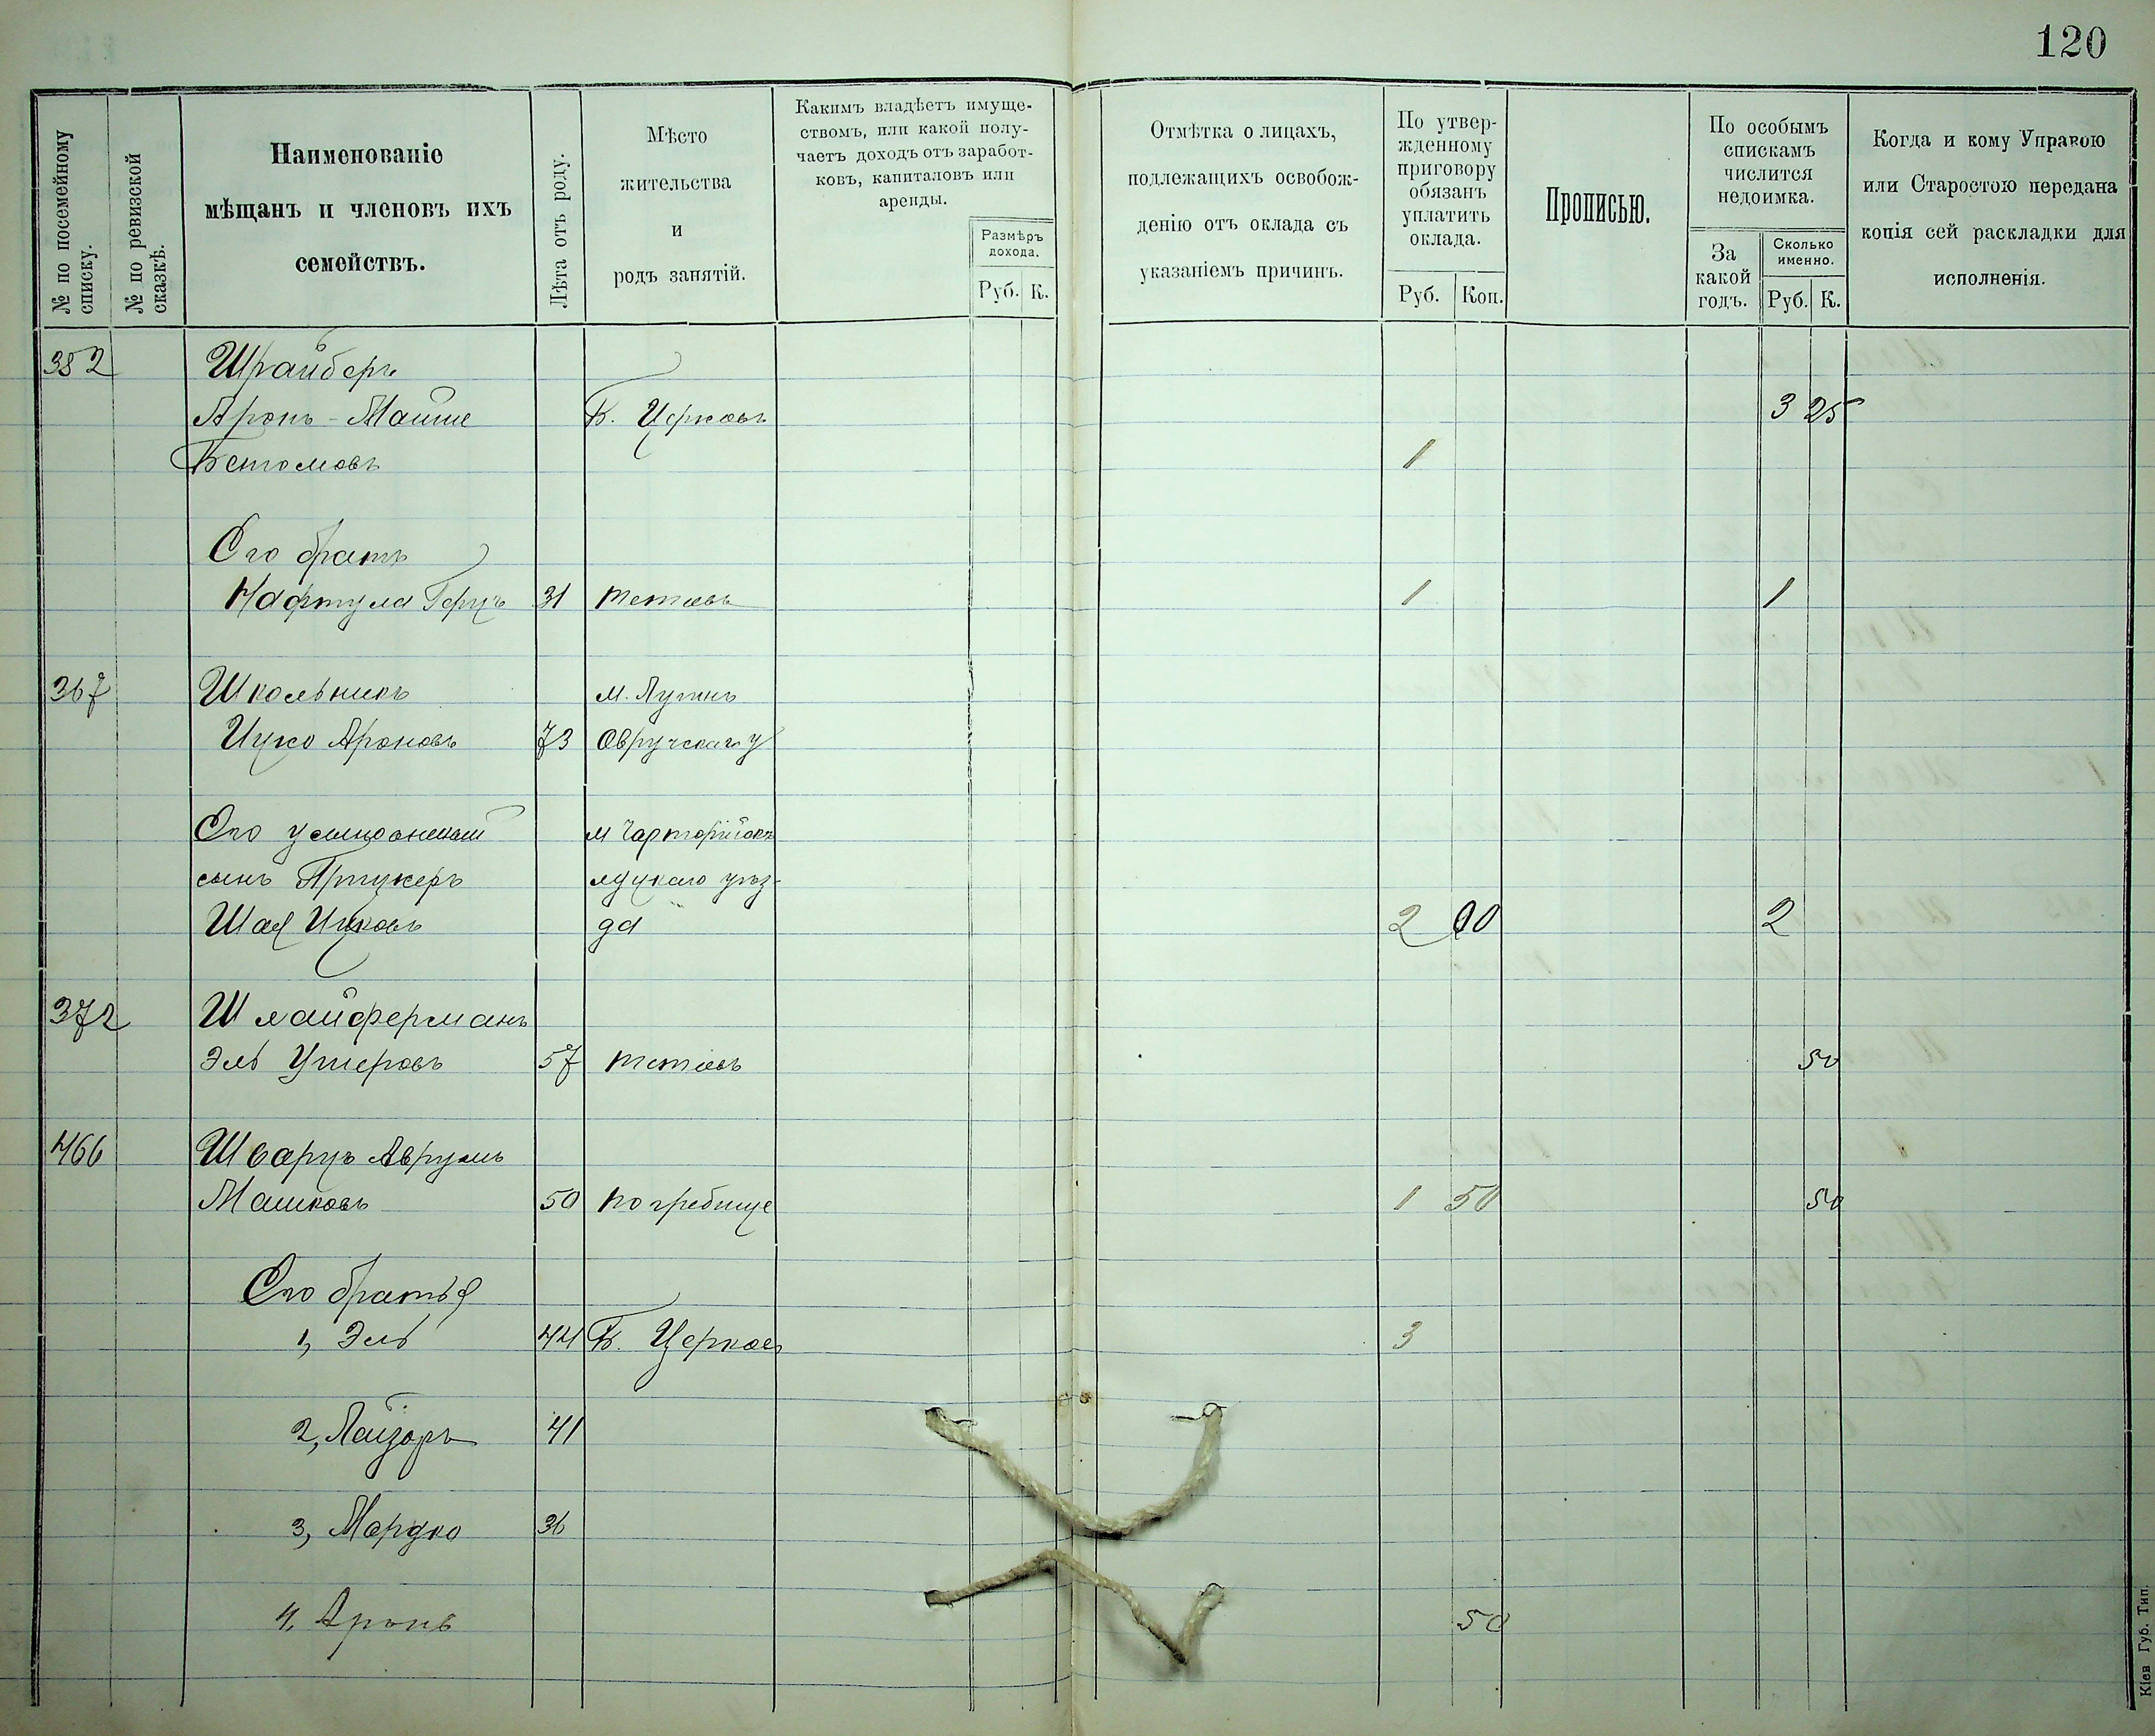 120
№ по посемейному списку.
№ по ревизской сказкѣ.
Наименованіе
мѣщанъ и членовъ ихъ
семействъ.
Лѣта отъ роду.
Мѣсто
жительства
и
родъ занятій.
Какимъ владѣетъ имуще-
ствомъ, или какой полу-
чаетъ доходъ отъ заработ-
ковъ, капиталовъ или
аренды.
Размѣръ
дохода.
Руб. К.
Отмѣтка о лицахъ,
подлежащихъ освобож-
денію отъ оклада съ
указаніемъ причинъ.
По утвер-
жденному
приговору
обязанъ
уплатить
оклада.
Руб. Коп.
Прописью.
По особымъ
спискамъ
числится
недоимка.
За
какой
годъ.
Сколько
именно.
Руб. К.
Когда и кому Управою
или Старостою передана
копія сей раскладки для
исполненія.
352 Шрайберъ
Аронъ-Мойше Б. Церковь 3 25
1
Его братъ
Нафтула Герцъ 31 тетіевъ 1 1
367 Школьникъ м.
Ицко Ароновъ 73 Овручскаго у
Его усыновленный м Чарторійскъ
сынъ луцкаго уѣз-
Шая Ицковъ да 2 00 2
372 Шлайферманъ
Эль Ушеровъ 57 тетіевъ 50
466 Шварцъ Аврумъ
Мошковъ 50 погребище 1 50 50
Его братья
1, Эль 44 Б. Церковь 3
2, Лайзоръ 41
3, Мордко 36
4, Аронъ 50
Кіев Губ. Тип.